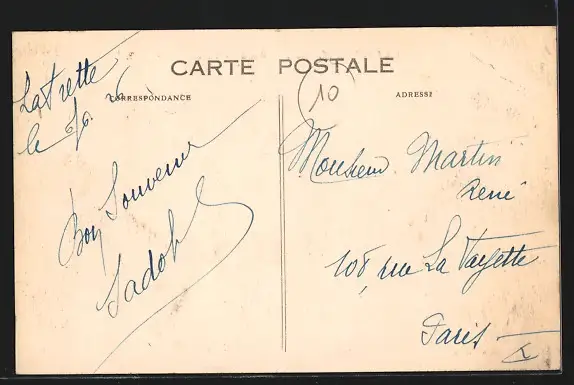 CARTE POSTALE
CORRESPONDANCE
ADRESSE
La Frette
le 6/6. 26
Bon Souvenir
(10)
Monsieur Martin
René
108, rue La Fayette
Paris